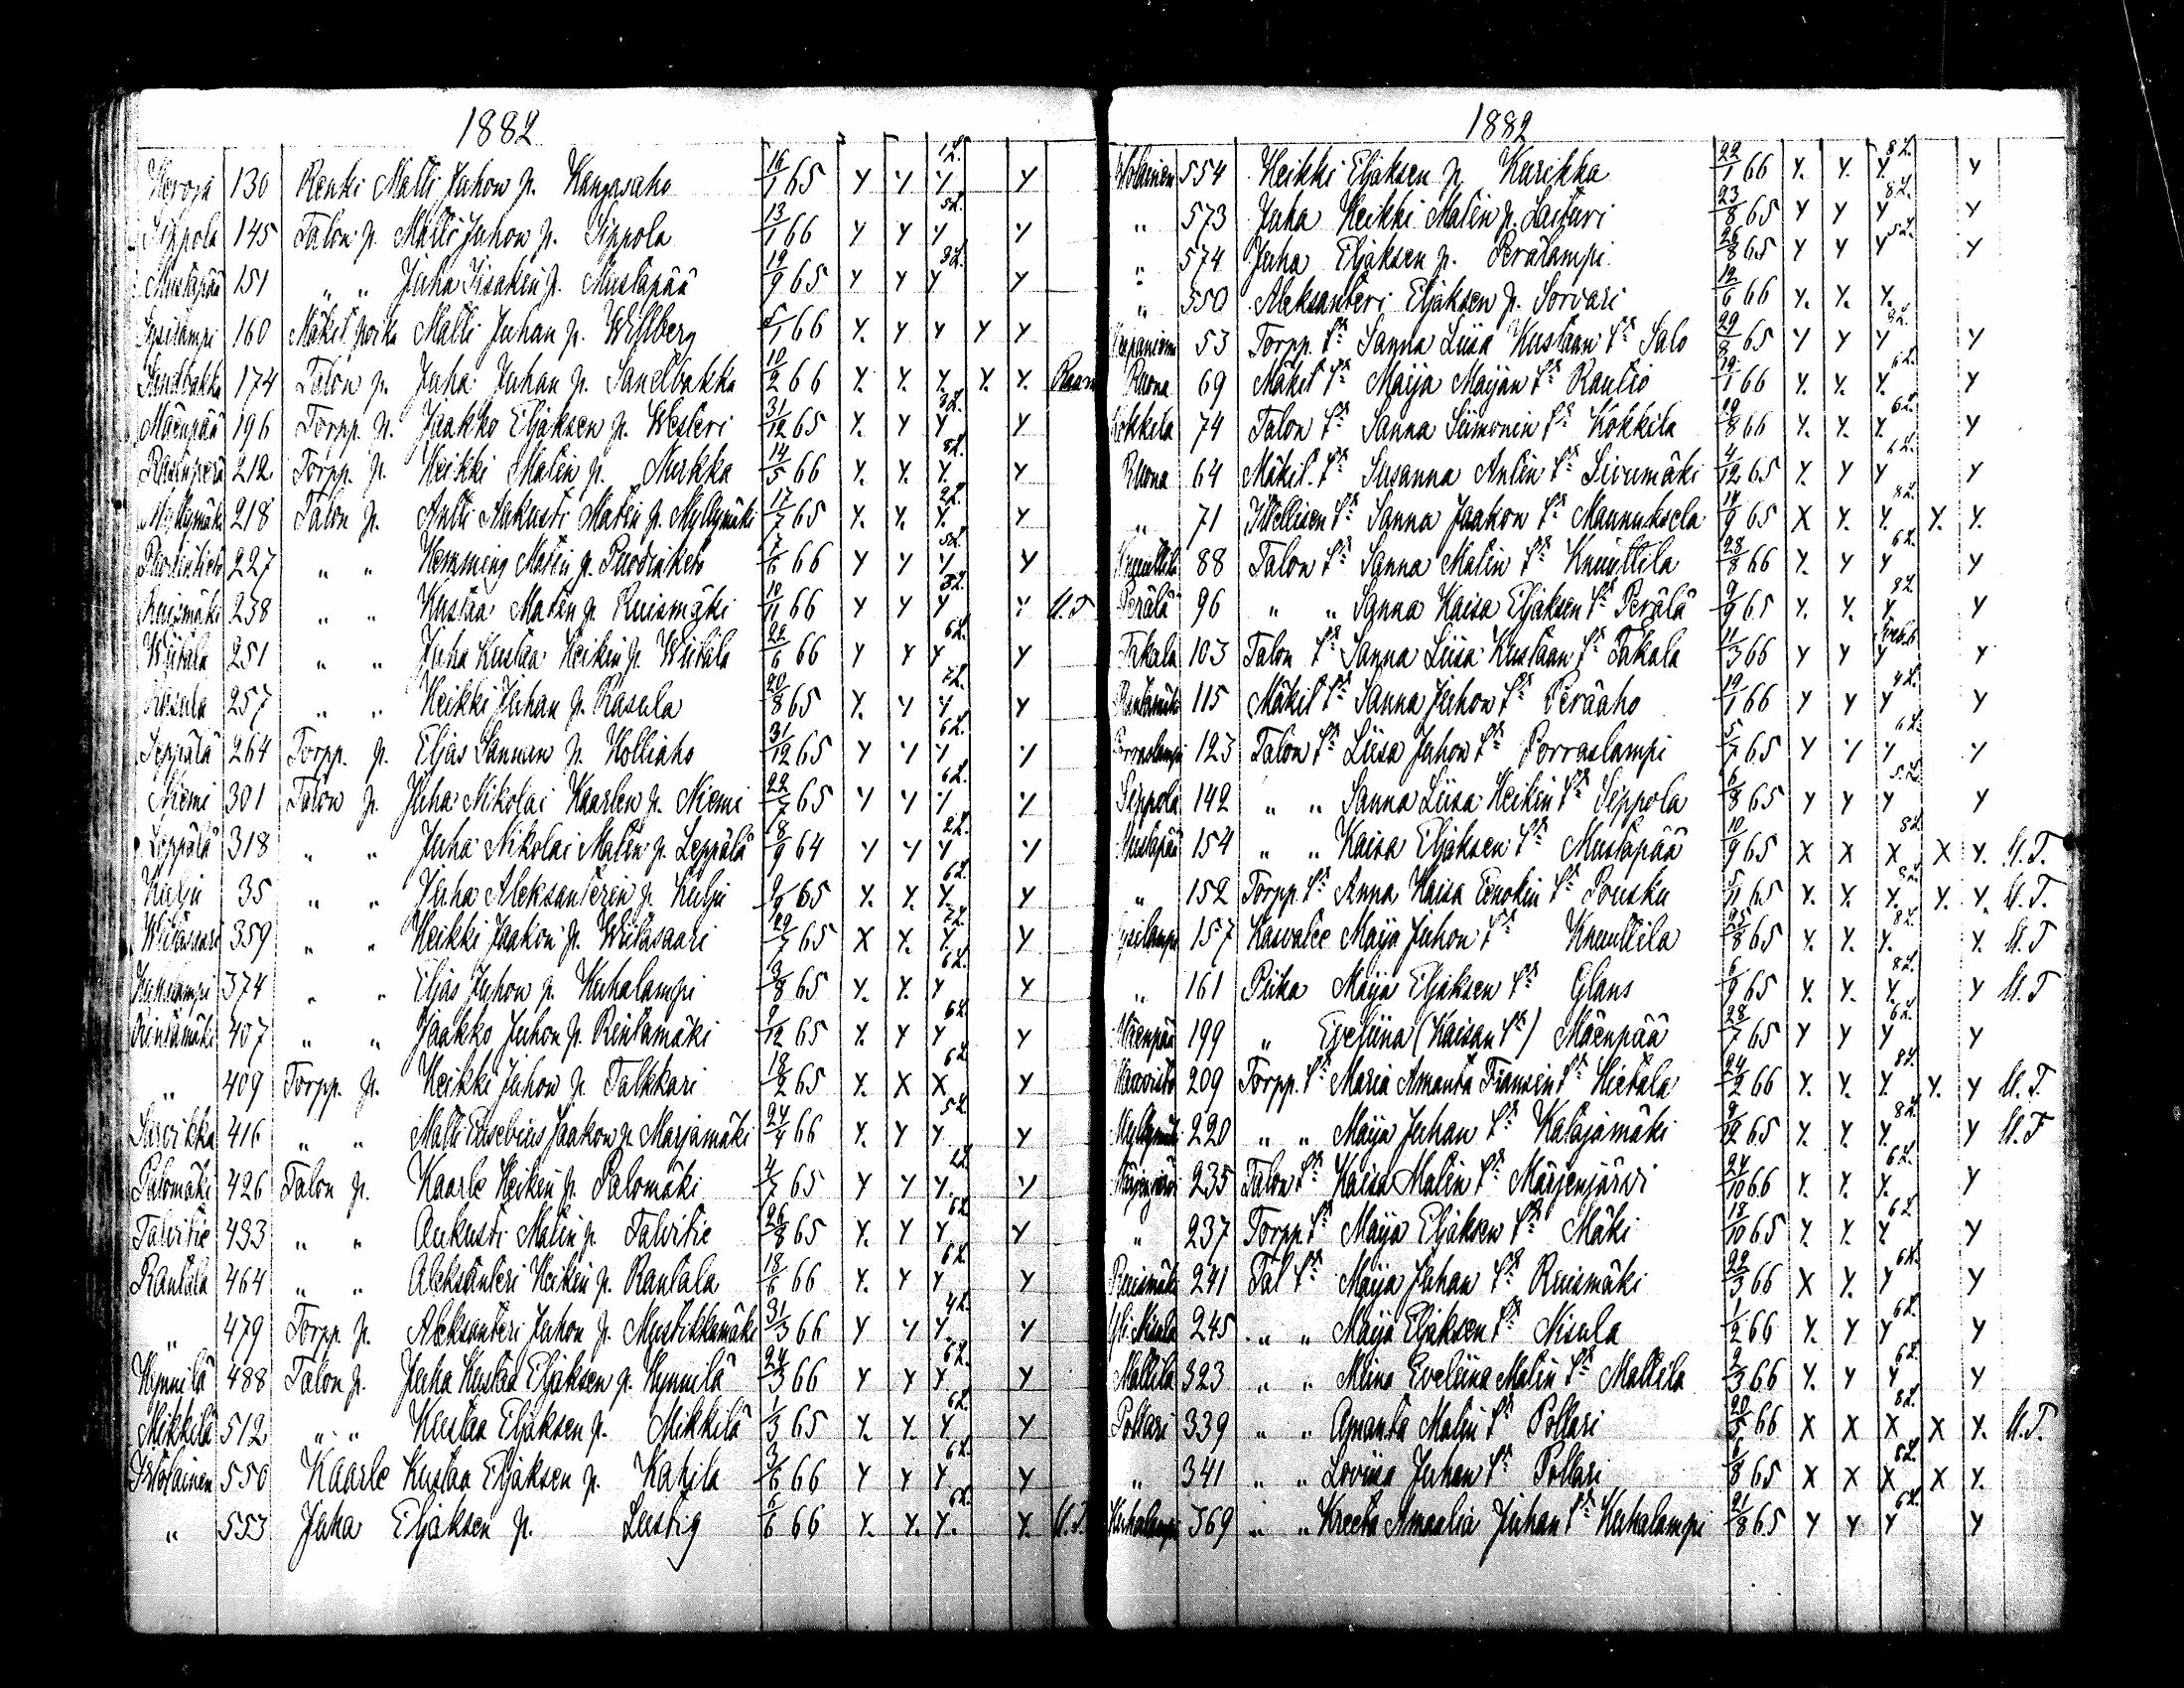 1882
130 Renki Matti Juhon p. Kangasaho 16/1 65 Y Y Y 1L. Y
Sippola 145 Talon p. Matti Juhon p. Sippola 13/1 66 Y Y Y 5L. Y
Mustapää 151 " " Juha Iisakin p. Mustapää 19/9 65 Y Y Y 8L. Y
160 Mäkit. poika Matti Juhan p. Wehlberg 5/1 66 Y. Y Y Y Y
Sandbakka 174 Talon p. Juha Juhan p. Sandbakka 10/2 66 Y. Y. Y. Y. Y.
Mäenpää 196 Torpp. p. Jaakko Eljaksen p. Westeri 31/12 65 Y. Y Y 2L. Y
212 Torpp. p. Heikki Matin p. Murkka 14/5 66 Y. Y. Y. 8L. Y
Myllymäki 218 Talon p. Antti Aukusti Matin p. Myllymäki 17/7 65 Y. Y. Y. 2L. Y
227 " " Hemming Matin p. 66 Y Y Y 5L. Y
Ruismäki 238 " " Kustaa Matin p. Ruismäki 10/11 66 Y Y Y 3L. Y U.T
Wiitala 251 " " Juha Kustaa Heikin p. Wiitala 66 Y Y Y 6L. Y
Rasula 257 " " Heikki Juhan p. Rasula 20/8 65 Y. Y Y Y
Seppälä 264 Torpp. p. Eljas Sannan p. Kolliaho 31/12 65 Y Y Y 6L. Y
Niemi 301 Talon p. Juha Nikolai Kaarlen p. Niemi 22/7 65 Y Y Y 6L. Y
Leppälä 318 " " Juha Nikolai Matin p. Leppälä 18/9 64 Y Y Y 2L. Y
Kulju 35 " " Juha Aleksanterin p. Kulju 65 Y. Y. Y. 6L. Y
Wiitasaari 359 " " Heikki Jaakon p. Wiitasaari 29/7 65 X Y. Y. Y
374 " " Eljas Juhon p. Kuhalampi 65 Y. Y. Y 6L. Y
Rintamäki 407 " " Jaakko Juhon p. Rintamäki 9/12 65 Y. Y Y 6L. Y
" 409 Torpp. p. Heikki Juhon p. Talkkari 18/2 65 Y. X X 6L Y
Sarvikka 416 " " Matti Eusebius Jaakon p. Marjamäki 24/4 66 Y. Y Y 5L. Y
Palomäki 426 Talon p. Kaarle Heikin p. Palomäki 4/7 65 Y Y Y. 2L. Y
Talvitie 433 " " Aukusti Matin p. Talvitie 26/8 65 Y. Y Y 6L Y
Rantala 464 " " Aleksanteri Heikin p. Rantala 18/6 66 Y. Y Y 6L. Y
" 479 Torpp. p. Aleksanteri Juhon p. Mustikkamäki 31/3 66 Y Y Y. 4L. Y
Hynnilä 488 Talon p. Juha Kustaa Eljaksen p. Hynnilä 24/3 66 Y Y Y 6L. Y
Mikkilä 512 " " Kustaa Eljaksen p. Mikkilä 1/3 65 Y. Y. Y 6L. Y
550 Kaarle Kustaa Eljaksen p. Kahila 3/6 66 Y Y Y. 6L. Y
" 553 Juha Eljaksen p. Lustig 6/6 66 Y. Y. Y. 6L. Y. U.T.
1882
554 Heikki Eljaksen p. Kurikka 22/1 66 Y. Y. Y. 8L. Y
" 573 Juha Heikki Matin p. Laituri 23/8 65 Y Y Y 8L. Y
" 574 Juha Eljaksen p. Perälampi 26/8 65 Y Y Y 5L. Y
" 550 Aleksanteri Eljaksen p. Sorvari 12/6 66 Y. Y. Y.
53 Torpp. tr Sanna Liisa Kustaan tr Salo 29/8 65 Y Y Y 8L. Y
Ruona 69 Mäkit. tr Maija Maijan tr Rautio 19/1 66 Y. Y. Y. 6L. Y
Kokkila 74 Talon tr Sanna Siimonin tr Kokkila 19/8 66 Y. Y. Y. 6L. Y
Ruona 64 Mäkit. tr Susanna Antin tr Sivumäki 4/12 65 Y. Y Y 6L. Y
" 71 Itellisen tr Sanna Jaakon tr Mannuksela 14/9 65 X Y. Y. 8L. Y. Y.
Knuuttila 88 Talon tr Sanna Matin tr Knuuttila 28/8 66 Y. Y Y 6L. Y
Perälä 96 " " Sanna Kaisa Eljaksen tr Perälä 9/9 65 Y. Y. Y. 8L. Y
Takala 103 Talon tr Sanna Liisa Kustaan tr Takala 11/3 66 Y Y Y Y
Rantamäki 115 Mäkit tr Sanna Juhon tr Perääho 19/1 66 Y Y Y 4L. Y
Porraslampi 123 Talon tr Liisa Juhon tr Porraslampi 5/7 65 Y Y Y 6L. Y
Sippola 142 " " Sanna Liisa Heikin tr Sippola 6/8 65 Y Y Y 5L Y
Mustapää 154 " " Kaisa Eljaksen tr Mustapää 10/9 65 X X X 8L X Y. U.T.
" 152 Torpp. tr Anna Kaisa Eenokin tr Pouska 5/11 65 Y. Y. Y. 8L. Y. Y. U.T.
157 Maija Juhon tr Knuuttila 25/8 65 Y. Y. Y. 8L. Y. U.T
" 161 Piika Maija Eljaksen tr Glans 6/9 65 Y. Y. Y. 8L. Y U.T
Mäenpää 199 " Eveliina (Kaisan tr) Mäenpää 28/7 65 Y Y Y 6L. Y
209 Torpp. tr Maria Amanta Fransin tr Hietala 24/2 66 Y. Y. Y. 8L. Y. Y U.T.
Myllymäki 220 " " Maija Juhan tr Katajamäki 9/12 65 Y. Y. Y. 8L. Y U.T
235 Talon tr Kaisa Matin tr Märjenjärvi 24/10 66 Y. Y. Y. 6L. Y
" 237 Torpp. tr Maija Eljaksen tr Mäki 18/10 65 Y. Y. Y. 6L Y
Ruismäki 241 Tal tr Maija Juhan tr Ruismäki 22/3 66 X Y. Y 6L. Y
Yli-Nisula 245 " " Maija Eljaksen tr Nisula 1/2 66 Y. Y Y 6L. Y
Mattila 323 " " Miina Eveliina Matin tr Mattila 2/3 66 Y. Y Y 6L. Y
Pollari 339 " " Amanta Matin tr Pollari 20/5 66 X X X 8L. X Y. U.T.
" 341 " " Loviisa Juhan tr Pollari 6/8 65 X X X 8L. X Y.
Kuhalampi 369 " " Kreeta Amaalia Juhan tr Kuhalampi 21/8 65 Y Y Y 6L. Y